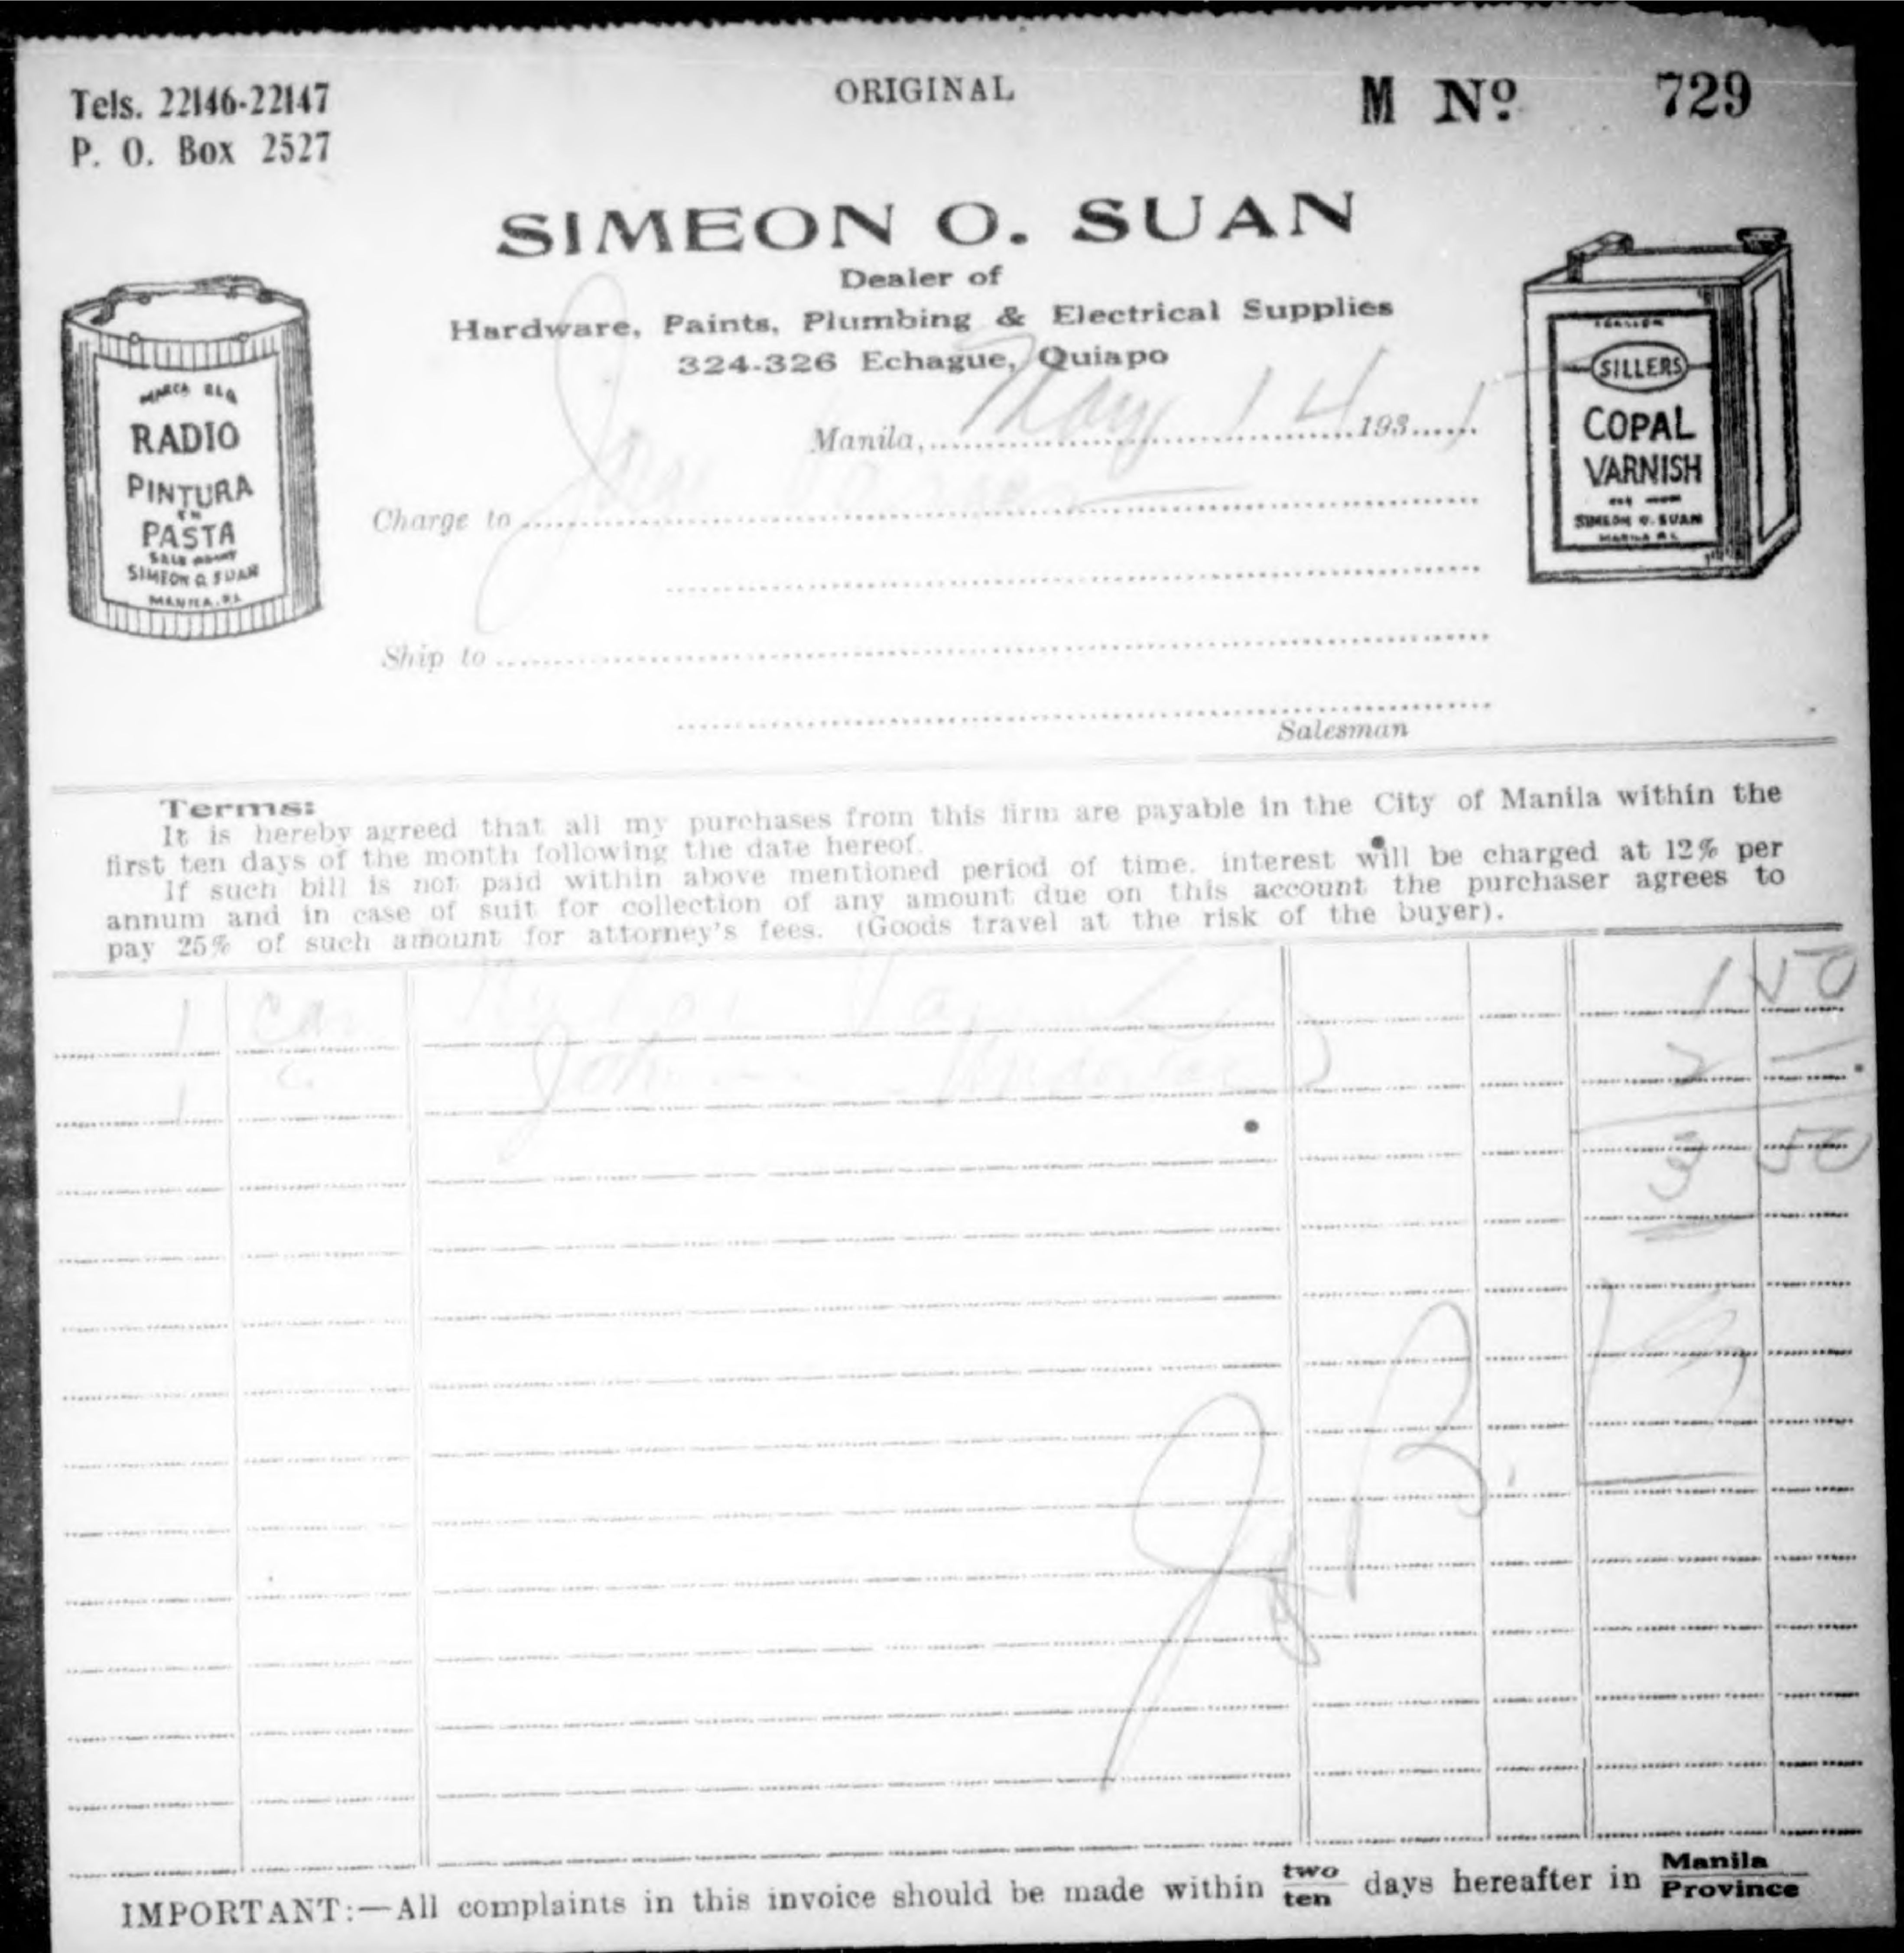 Tels. 22146-22147
P. O. Box 2527
ORIGINAL
M Nº 729
SIMEON O. SUAN
Dealer of
Hardware, Paints, Plumbing & Electrical Supplies
324-326 Echague, Quiapo
RADIO
PINTURA
EN
PASTA
SIMEON O. SUAN
MANILA, P.I.
SILLERS
COPAL
VARNISH
SIMEON O. SUAN
MANILA P.I.
Manila, May 14 1931
Charge to
Ship to
Salesman
Terms:
It is hereby agreed that all my purchases from this firm are payable in the City of Manila within the
first ten days of the month following the date hereof.
If such bill is not paid within above mentioned period of time, interest will be charged at 12% per
annum and in case of suit for collection of any amount due on this account the purchaser agrees to
pay 25% of such amount for attorney's fees. (Goods travel at the risk of the buyer).
1 1 50
1 2 —
3 50
IMPORTANT:—All complaints in this invoice should be made within two/ten days hereafter in Manila/Province